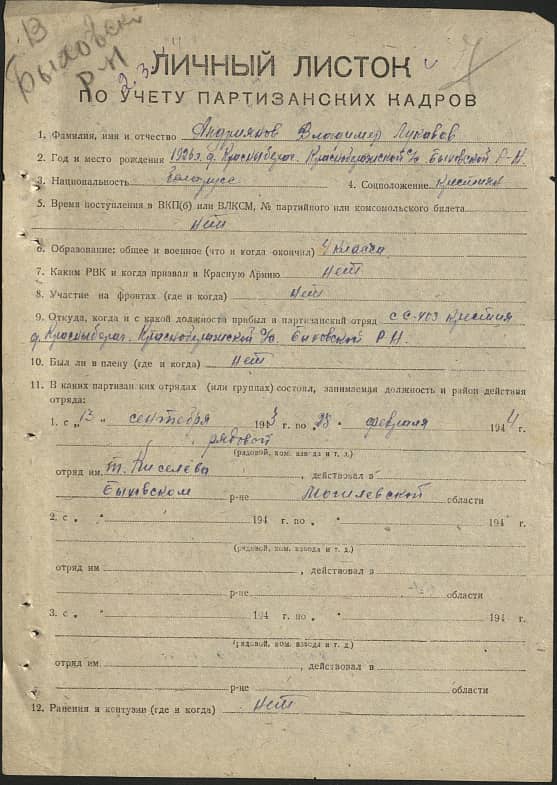 В
Быховск
Р-Н
2.3.
ЛИЧНЫЙ ЛИСТОК
ПО УЧЕТУ ПАРТИЗАНСКИХ КАДРОВ
1. Фамилия, имя и отчество Андриянов Владимир
2. Год и место рождения 1926 г. д. Красныберег. Краснобережский с/с Быховской Р-Н
3. Национальность белоруссс 4. Соцположение крестьян
5. Время поступления в ВКП(б) или ВЛКСМ, № партийного или комсомольского билета
Нет
6. Образование: общее и военное (что и когда окончил) 4 класса
7. Каким РВК и когда призван в Красную Армию Нет
8. Участие на фронтах (где и когда) Нет
9. Откуда, когда и с какой должности прибыл в партизанский отряд
д. Красныберег. Краснобережской с/с. Быховской Р-Н
10. Был ли в плену (где и когда) Нет
11. В каких партизан ких отрядах (или группах) состоял, занимаемая должность и район действия
отряда:
1. с „ 13 " сентября 1943 г. по „ 28 " февраля 1944 г.
рядовой
(рядовой, ком. взвода и т. д.)
отряд им. т. Киселёва , действовал в
Быховском р-не Могилевской области
2. с „ " 194 г. по „ " 194 г.
(рядовой, ком. взвода и т. д.)
отряд им , действовал в
р-не области
3. с „ " 194 г. по „ " 194 г.
(рядовой, ком. взвода и т. д.)
отряд им , действовал в
р-не области
12. Ранения и контузии (где и когда) Нет